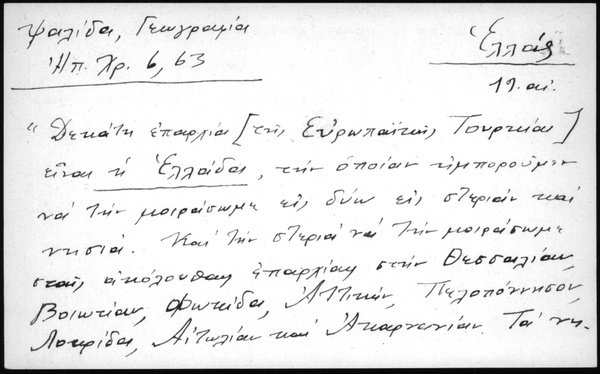 Ψαλίδα, Γεωγραφία
Ἠπ. Χρ. 6, 63
Ἑλλάς
19. αἰ.
"Δεκάτη ἐπαρχία [τῆς Εὐρωπαϊκῆς Τουρκίας]
εἶναι ἡ Ἑλλάδα, τὴν ὁποίαν ἠμποροῦμεν
νά τήν μοιράσωμε εἰς δύω εἰς στεριάν καί
νησιά. Καί τήν στεριά νά τήν μοιράσωμε
σταῖς ἀκόλουθαις ἐπαρχίαις στήν Θεσσαλίαν,
Βοιωτίαν, Φωκίδα, Ἀττικήν, Πελοπόννησον,
Λοκρίδα, Αἰτωλίαν καί Ἀκαρνανίαν. Τά νη-